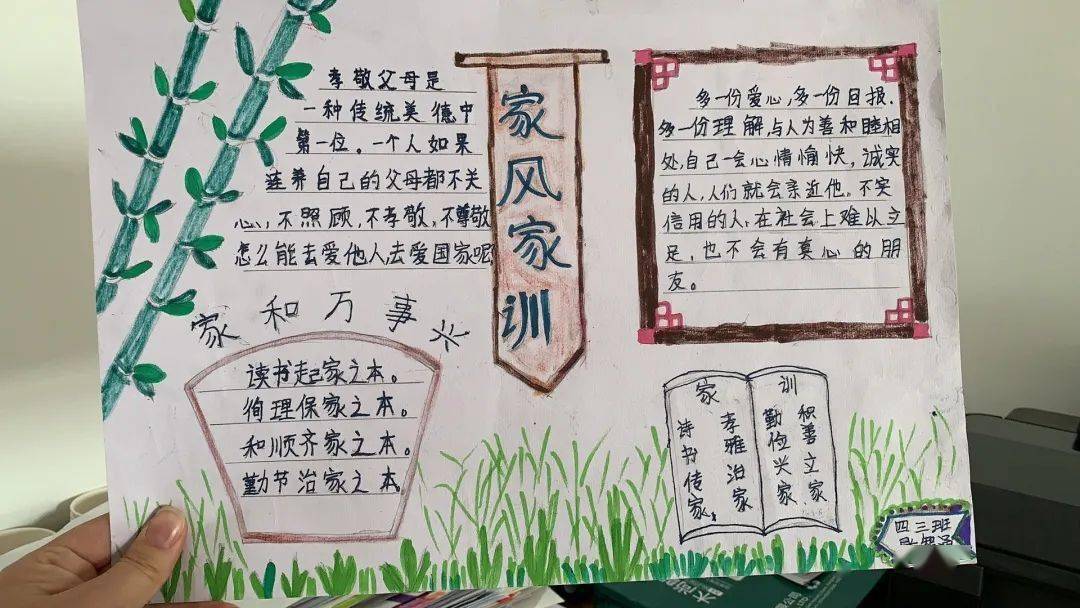 孝敬父母是
一种传统美德中
第一位。一个人如果
连养自己的父母都不关
心,不照顾,不孝敬,不尊敬
怎么能去爱他人,去爱国家呢
家风家训
多一份爱心,多一份日报.
多一份理解,与人为善和睦相
处,自己一会心情愉快,诚实
的人,人们就会亲近他。不实
信用的人,在社会上难以立
足,也不会有真心的朋
友。
家和万事兴
读书起家之本。
徇理保家之本。
和顺齐家之本。
勤节治家之本。
家训
诗书传家。
孝雅治家
勤俭兴家
积善立家
四三班